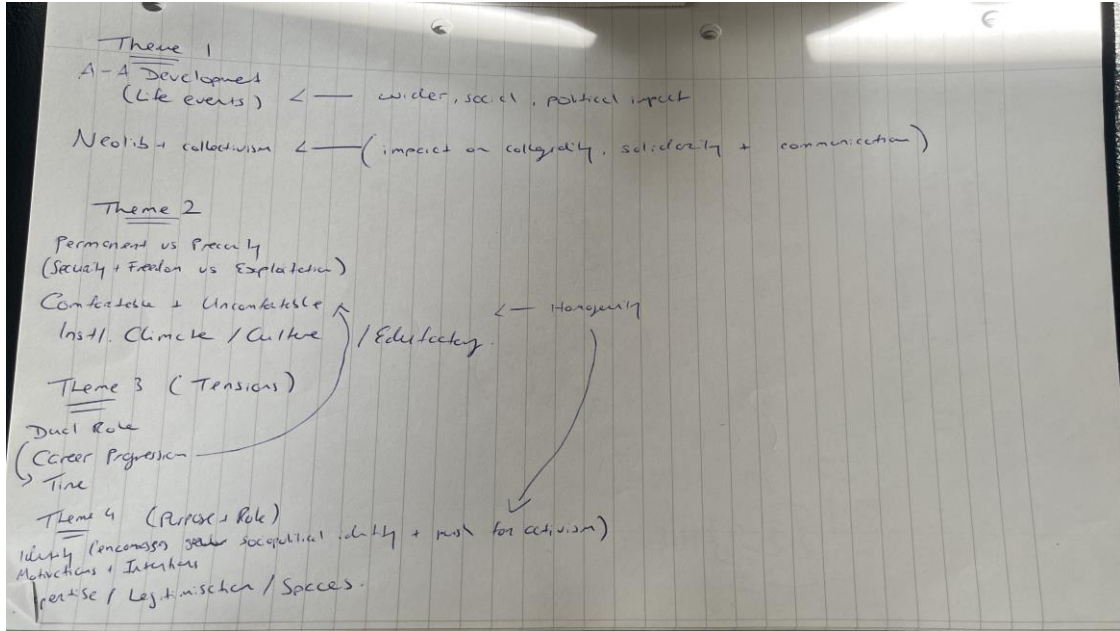 Theme 1
A-A Development
(Life events) <— wider, social, political impact
Neolib + collectivism <— (impact on collegiality, solidarity + communication)
Theme 2
Permanent vs Precarity
(Security + Freedom vs Exploitation)
Comfortable + Uncomfortable <— Homogenity
Instl. Climate / Culture / Edufactory.
Theme 3 (Tensions)
Dual Role
Career Progression
Time
Theme 4 (Purpose + Role)
Identity (encompasses sociopolitical identity + risk for activism)
Motivations + Intentions
pertise / Legitimisation / Spaces.